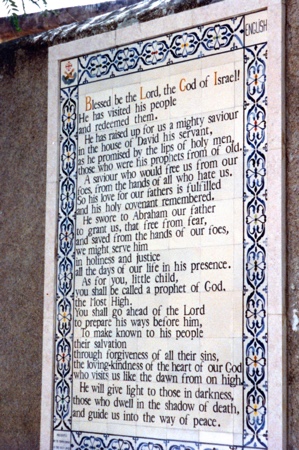 ENGLISH
Blessed be the Lord, the God of Israel!
He has visited his people
and redeemed them.
He has raised up for us a mighty saviour
in the house of David his servant,
as he promised by the lips of holy men,
those who were his prophets from of old.
A saviour who would free us from our
foes, from the hands of all who hate us.
So his love for our fathers is fulfilled
and his holy covenant remembered.
He swore to Abraham our father
to grant us, that free from fear,
and saved from the hands of our foes,
we might serve him
in holiness and justice
all the days of our life in his presence.
As for you, little child,
you shall be called a prophet of God,
the Most High.
You shall go ahead of the Lord
to prepare his ways before him,
To make known to his people
their salvation
through forgiveness of all their sins,
the loving-kindness of the heart of our God
who visits us like the dawn from on high.
He will give light to those in darkness,
those who dwell in the shadow of death,
and guide us into the way of peace.